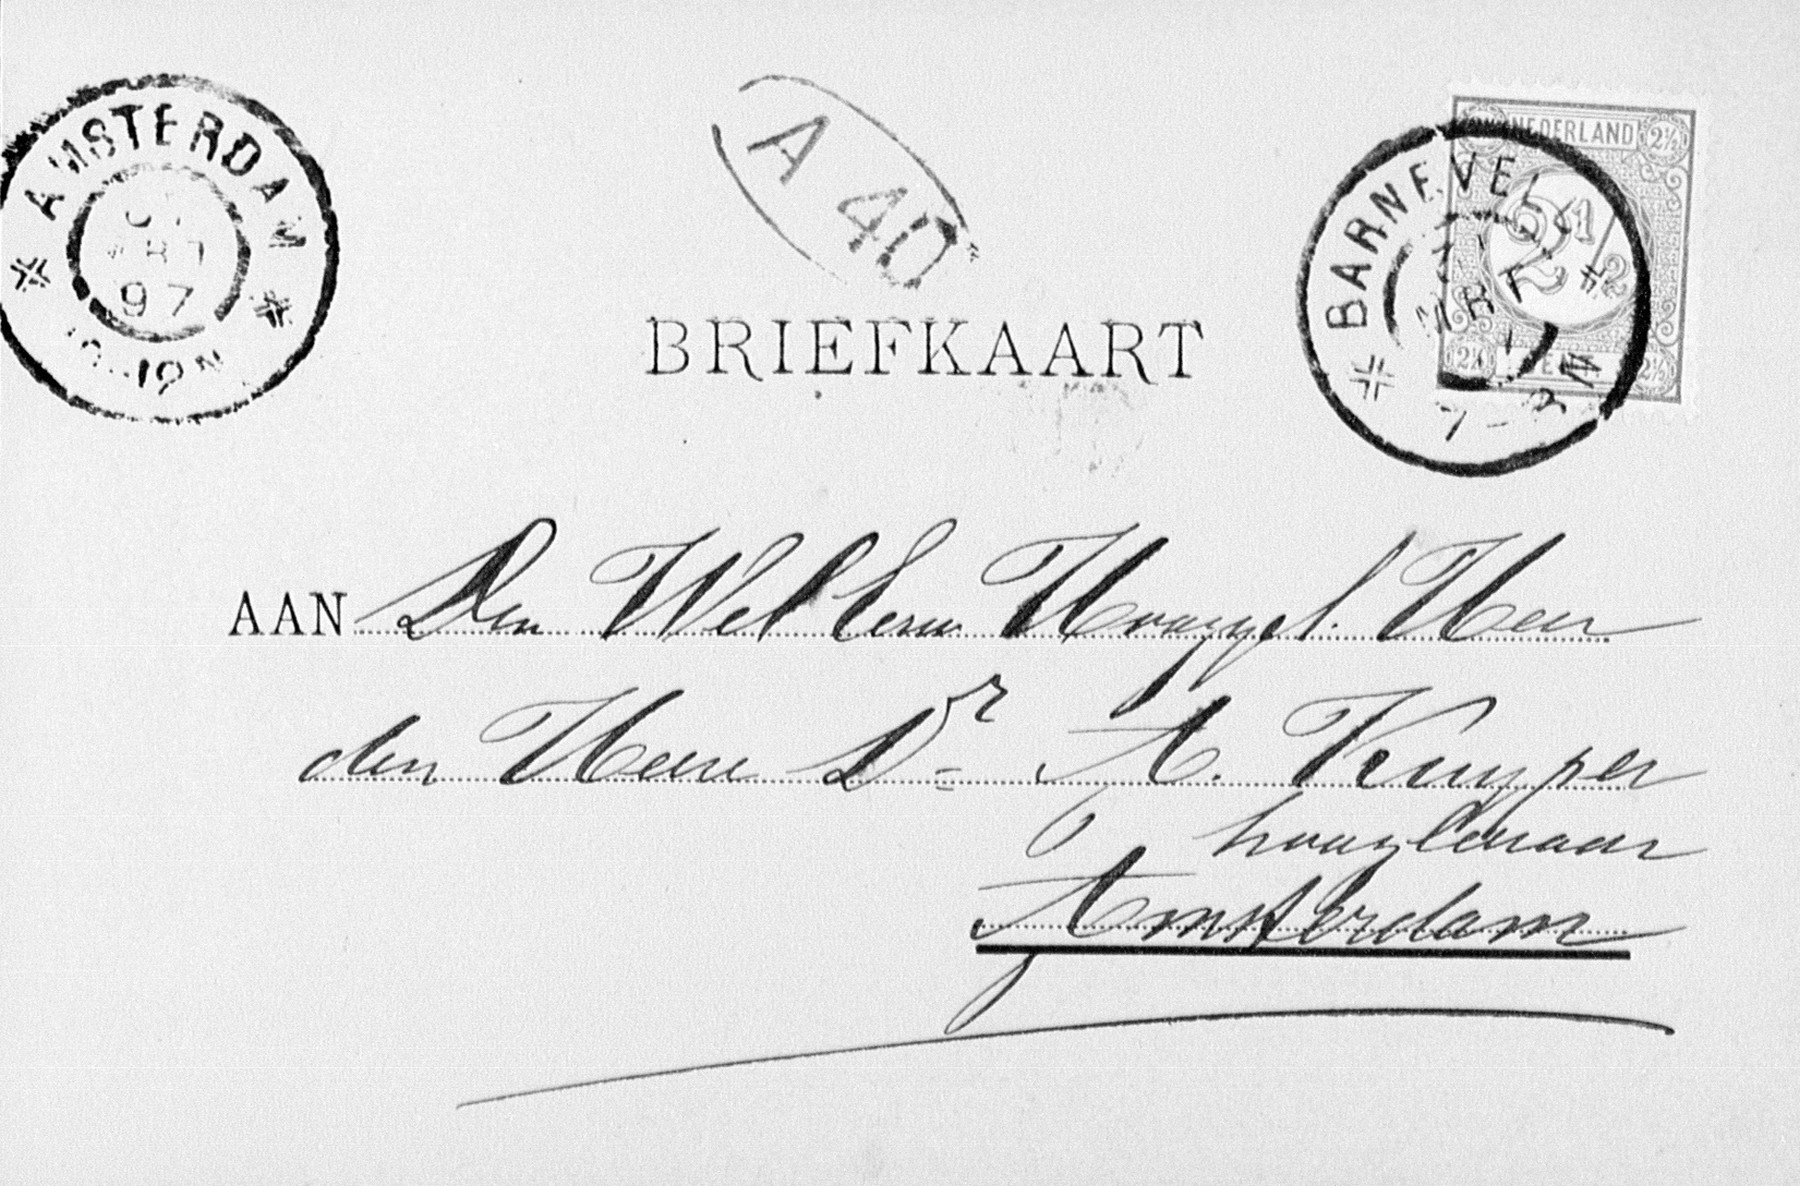 AMSTERDAM
97
A 40
NEDERLAND 2½
2½
2½ 2½
BARNEVELD
MRT
7-8N
BRIEFKAART
AAN Den WelEerw Hooggel. Heer
den Heere Dr A. Kuyper
hoogleraar
Amsterdam